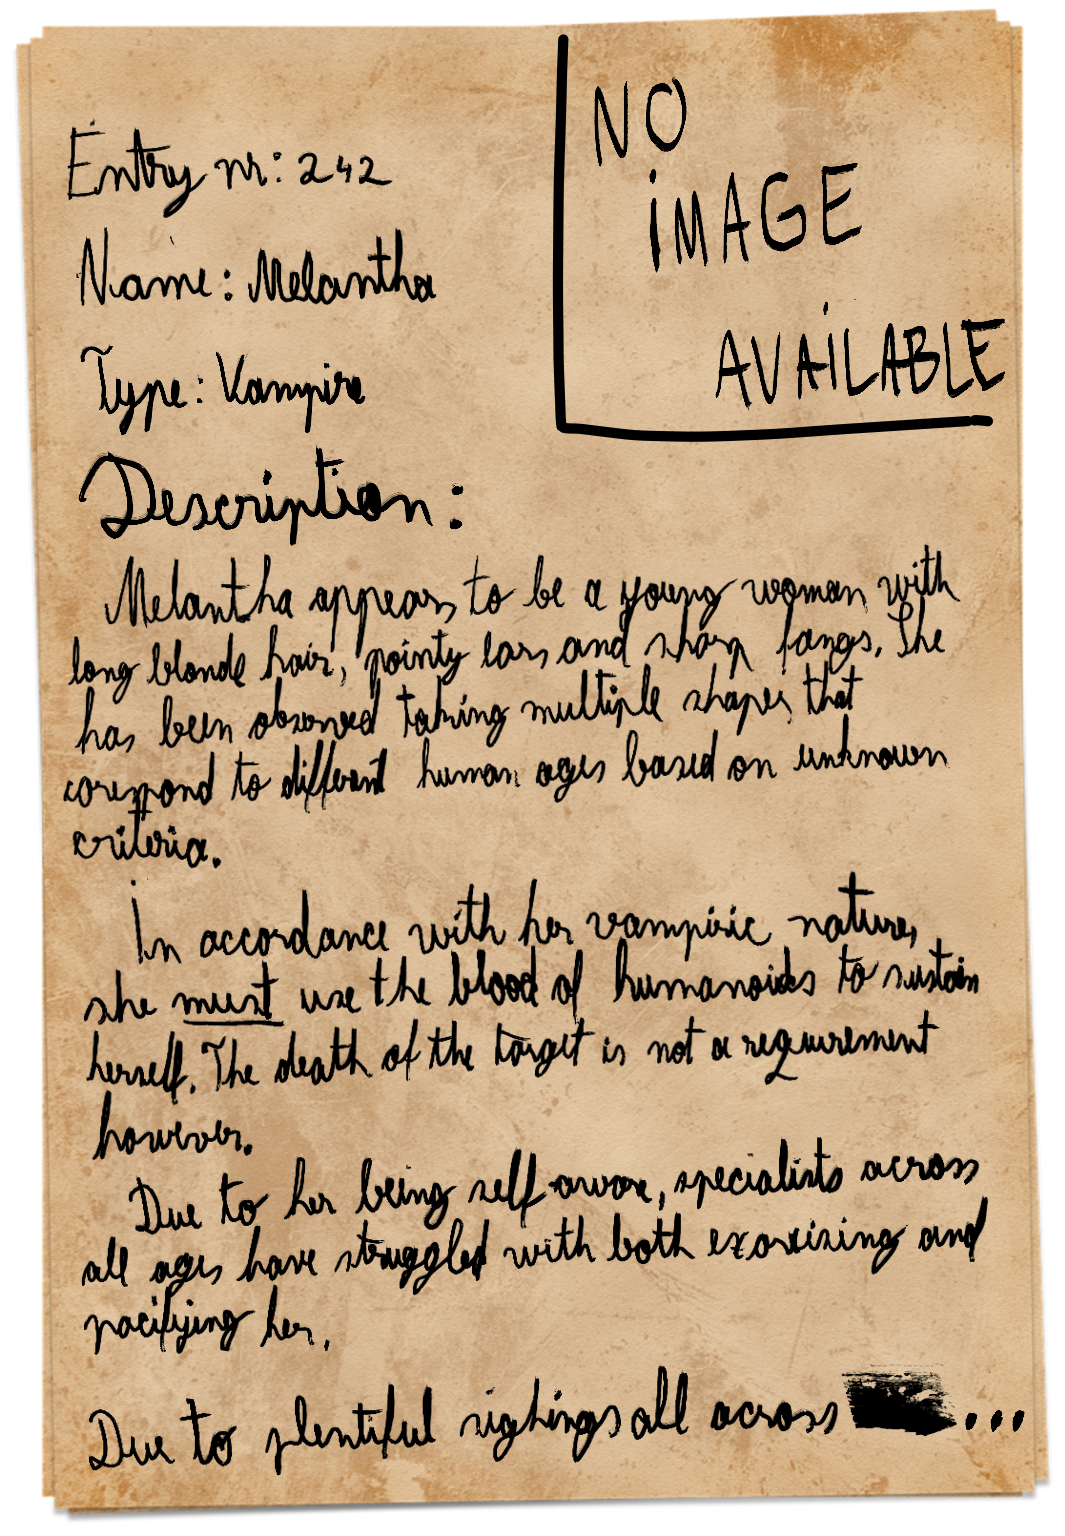 NO
IMAGE
AVAILABLE
Entry nr: 242
Name: Melantha
Type: Vampire
Description:
Melantha appears to be a young woman with
long blonde hair, pointy ears and sharp fangs. She
has been observed taking multiple shapes that
corespond to different human ages based on unknown
criteria.
In accordance with her vampiric nature,
she must use the blood of humanoids to sustain
herself. The death of the target is not a requirement
however.
Due to her being self-aware, specialists across
all ages have struggled with both exorcising and
pacifying her.
Due to plentiful sightings all across ...